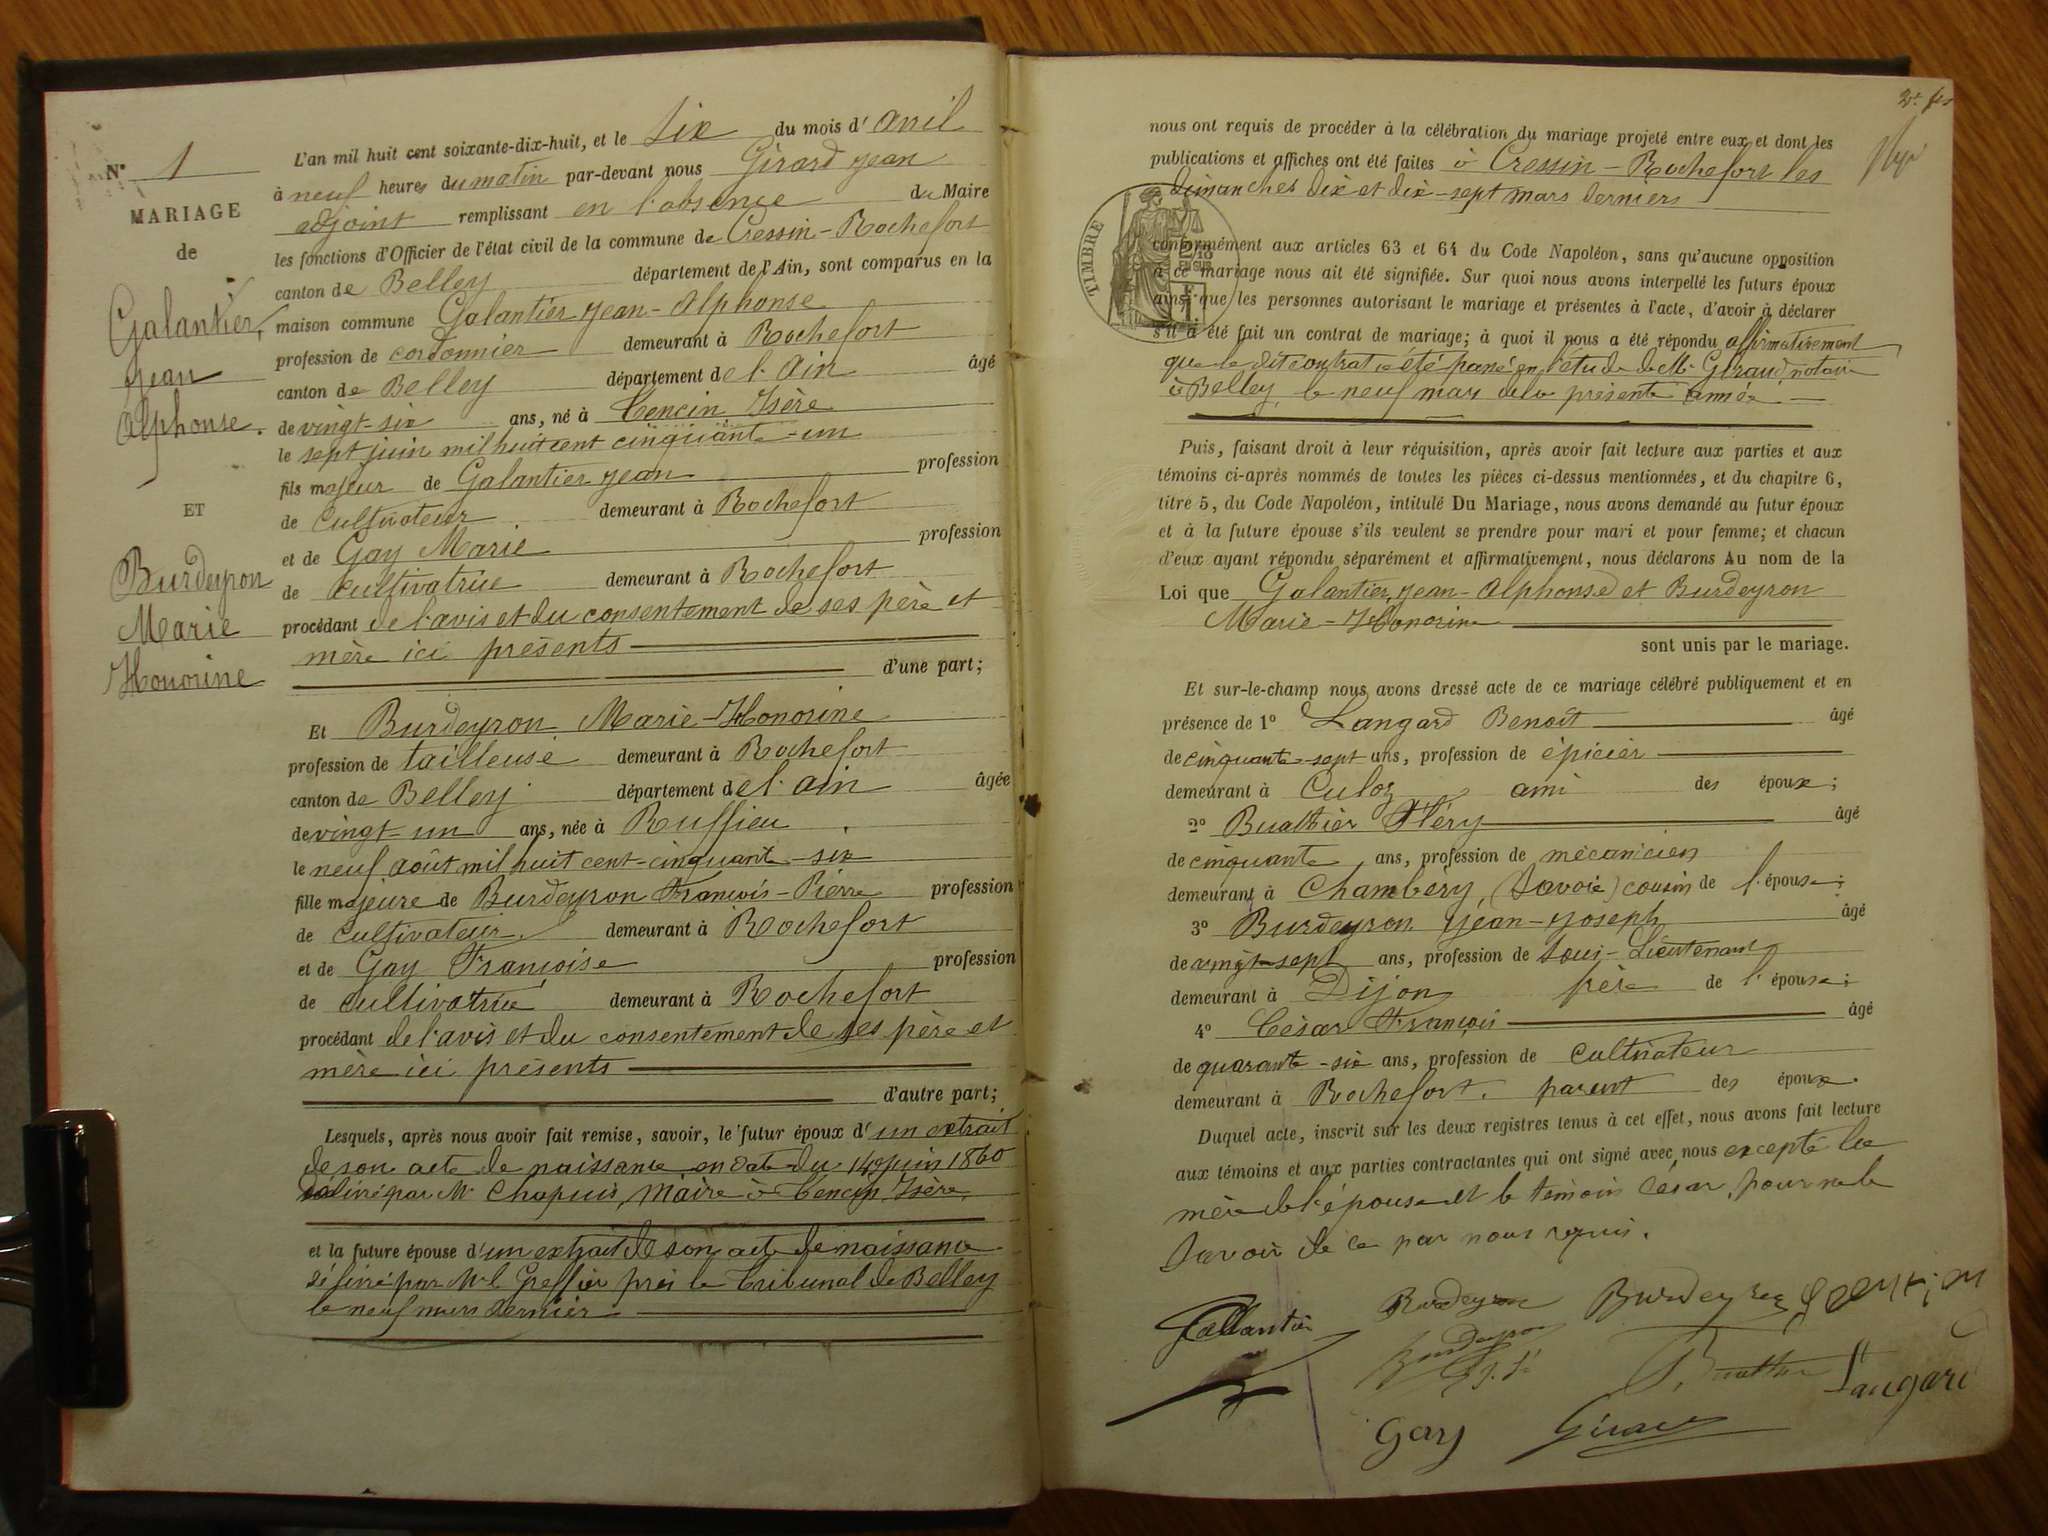 N° 1
MARIAGE
de
Galantier,
Jean
Alphonse.
ET
Burdeyron
Marie
Honorine
L'an mil huit cent soixante-dix-huit, et le Six du mois d' avril
à neuf heures du matin par-devant nous Girard Jean
adjoint remplissant en l'absence du Maire
les fonctions d'Officier de l'état civil de la commune de Cressin-Rochefort
canton de Belley département de l'Ain, sont comparus en la
maison commune Galantier Jean-Alphonse
profession de cordonnier demeurant à Rochefort
canton de Belley département de l'Ain âgé
de vingt-six ans, né à Tencin Isère
le sept juin mil huit cent cinquante-un
fils majeur de Galantier Jean profession
de cultivateur demeurant à Rochefort
et de Gay Marie profession
de cultivatrice demeurant à Rochefort
procédant de l'avis et du consentement de ses père et
mère ici présents
d'une part;
Et Burdeyron Marie-Honorine
profession de tailleuse demeurant à Rochefort
canton de Belley département de l'ain âgée
de vingt-un ans, née à Ruffieu
le neuf août mil huit cent-cinquante-six
fille majeure de Burdeyron François-Pierre profession
de cultivateur demeurant à Rochefort
et de Gay Françoise profession
de cultivatrice demeurant à Rochefort
procédant de l'avis et du consentement de ses père et
mère ici présents
d'autre part;
Lesquels, après nous avoir fait remise, savoir, le futur époux d'un extrait
de son acte de naissance en date du juin 1860
délivré par Mr Chapuis, Maire à Tencin Isère,
et la future épouse d'un extrait de son acte de naissance
délivré par Mr le Greffier près le Tribunal de Belley
le neuf mars dernier
nous ont requis de procéder à la célébration du mariage projeté entre eux et dont les
publications et affiches ont été faites à Cressin-Rochefort les
dimanches dix et dix-sept mars derniers
TIMBRE
2/10
EN SUS
conformément aux articles 63 et 64 du Code Napoléon, sans qu'aucune opposition
à ce mariage nous ait été signifiée. Sur quoi nous avons interpellé les futurs époux
ainsi que les personnes autorisant le mariage et présentes à l'acte, d'avoir à déclarer
s'il a été fait un contrat de mariage; à quoi il nous a été répondu affirmativement
que le dit contrat a été passé en l'étude de Me Giraud notaire
à Belley, le neuf mars de la présente année.
Puis, faisant droit à leur réquisition, après avoir fait lecture aux parties et aux
témoins ci-après nommés de toutes les pièces ci-dessus mentionnées, et du chapitre 6,
titre 5, du Code Napoléon, intitulé Du Mariage, nous avons demandé au futur époux
et à la future épouse s'ils veulent se prendre pour mari et pour femme; et chacun
d'eux ayant répondu séparément et affirmativement, nous déclarons Au nom de la
Loi que Galantier, Jean-Alphonse et Burdeyron
Marie-Honorine
sont unis par le mariage.
Et sur-le-champ nous avons dressé acte de ce mariage célébré publiquement et en
présence de 1° Langard Benoît âgé
de cinquante-sept ans, profession de épicier
demeurant à Culoz ami des époux;
2° Buathier Fléry âgé
de cinquante ans, profession de mécanicien
demeurant à Chambéry, (Savoie) cousin de l'épouse;
3° Burdeyron Jean-Joseph âgé
de vingt-sept ans, profession de Sous-Lieutenant
demeurant à Dijon frère de l'épouse;
4° César François âgé
de quarante-six ans, profession de cultivateur
demeurant à Rochefort. parent des époux
Duquel acte, inscrit sur les deux registres tenus à cet effet, nous avons fait lecture
aux témoins et aux parties contractantes qui ont signé avec nous excepté la
mère de l'épouse et le témoin César, pour ne le
savoir de ce par nous requis.
Gallantier Burdeyron Burdeyron
Burdeyron
Buathier Langard
Gay Girard